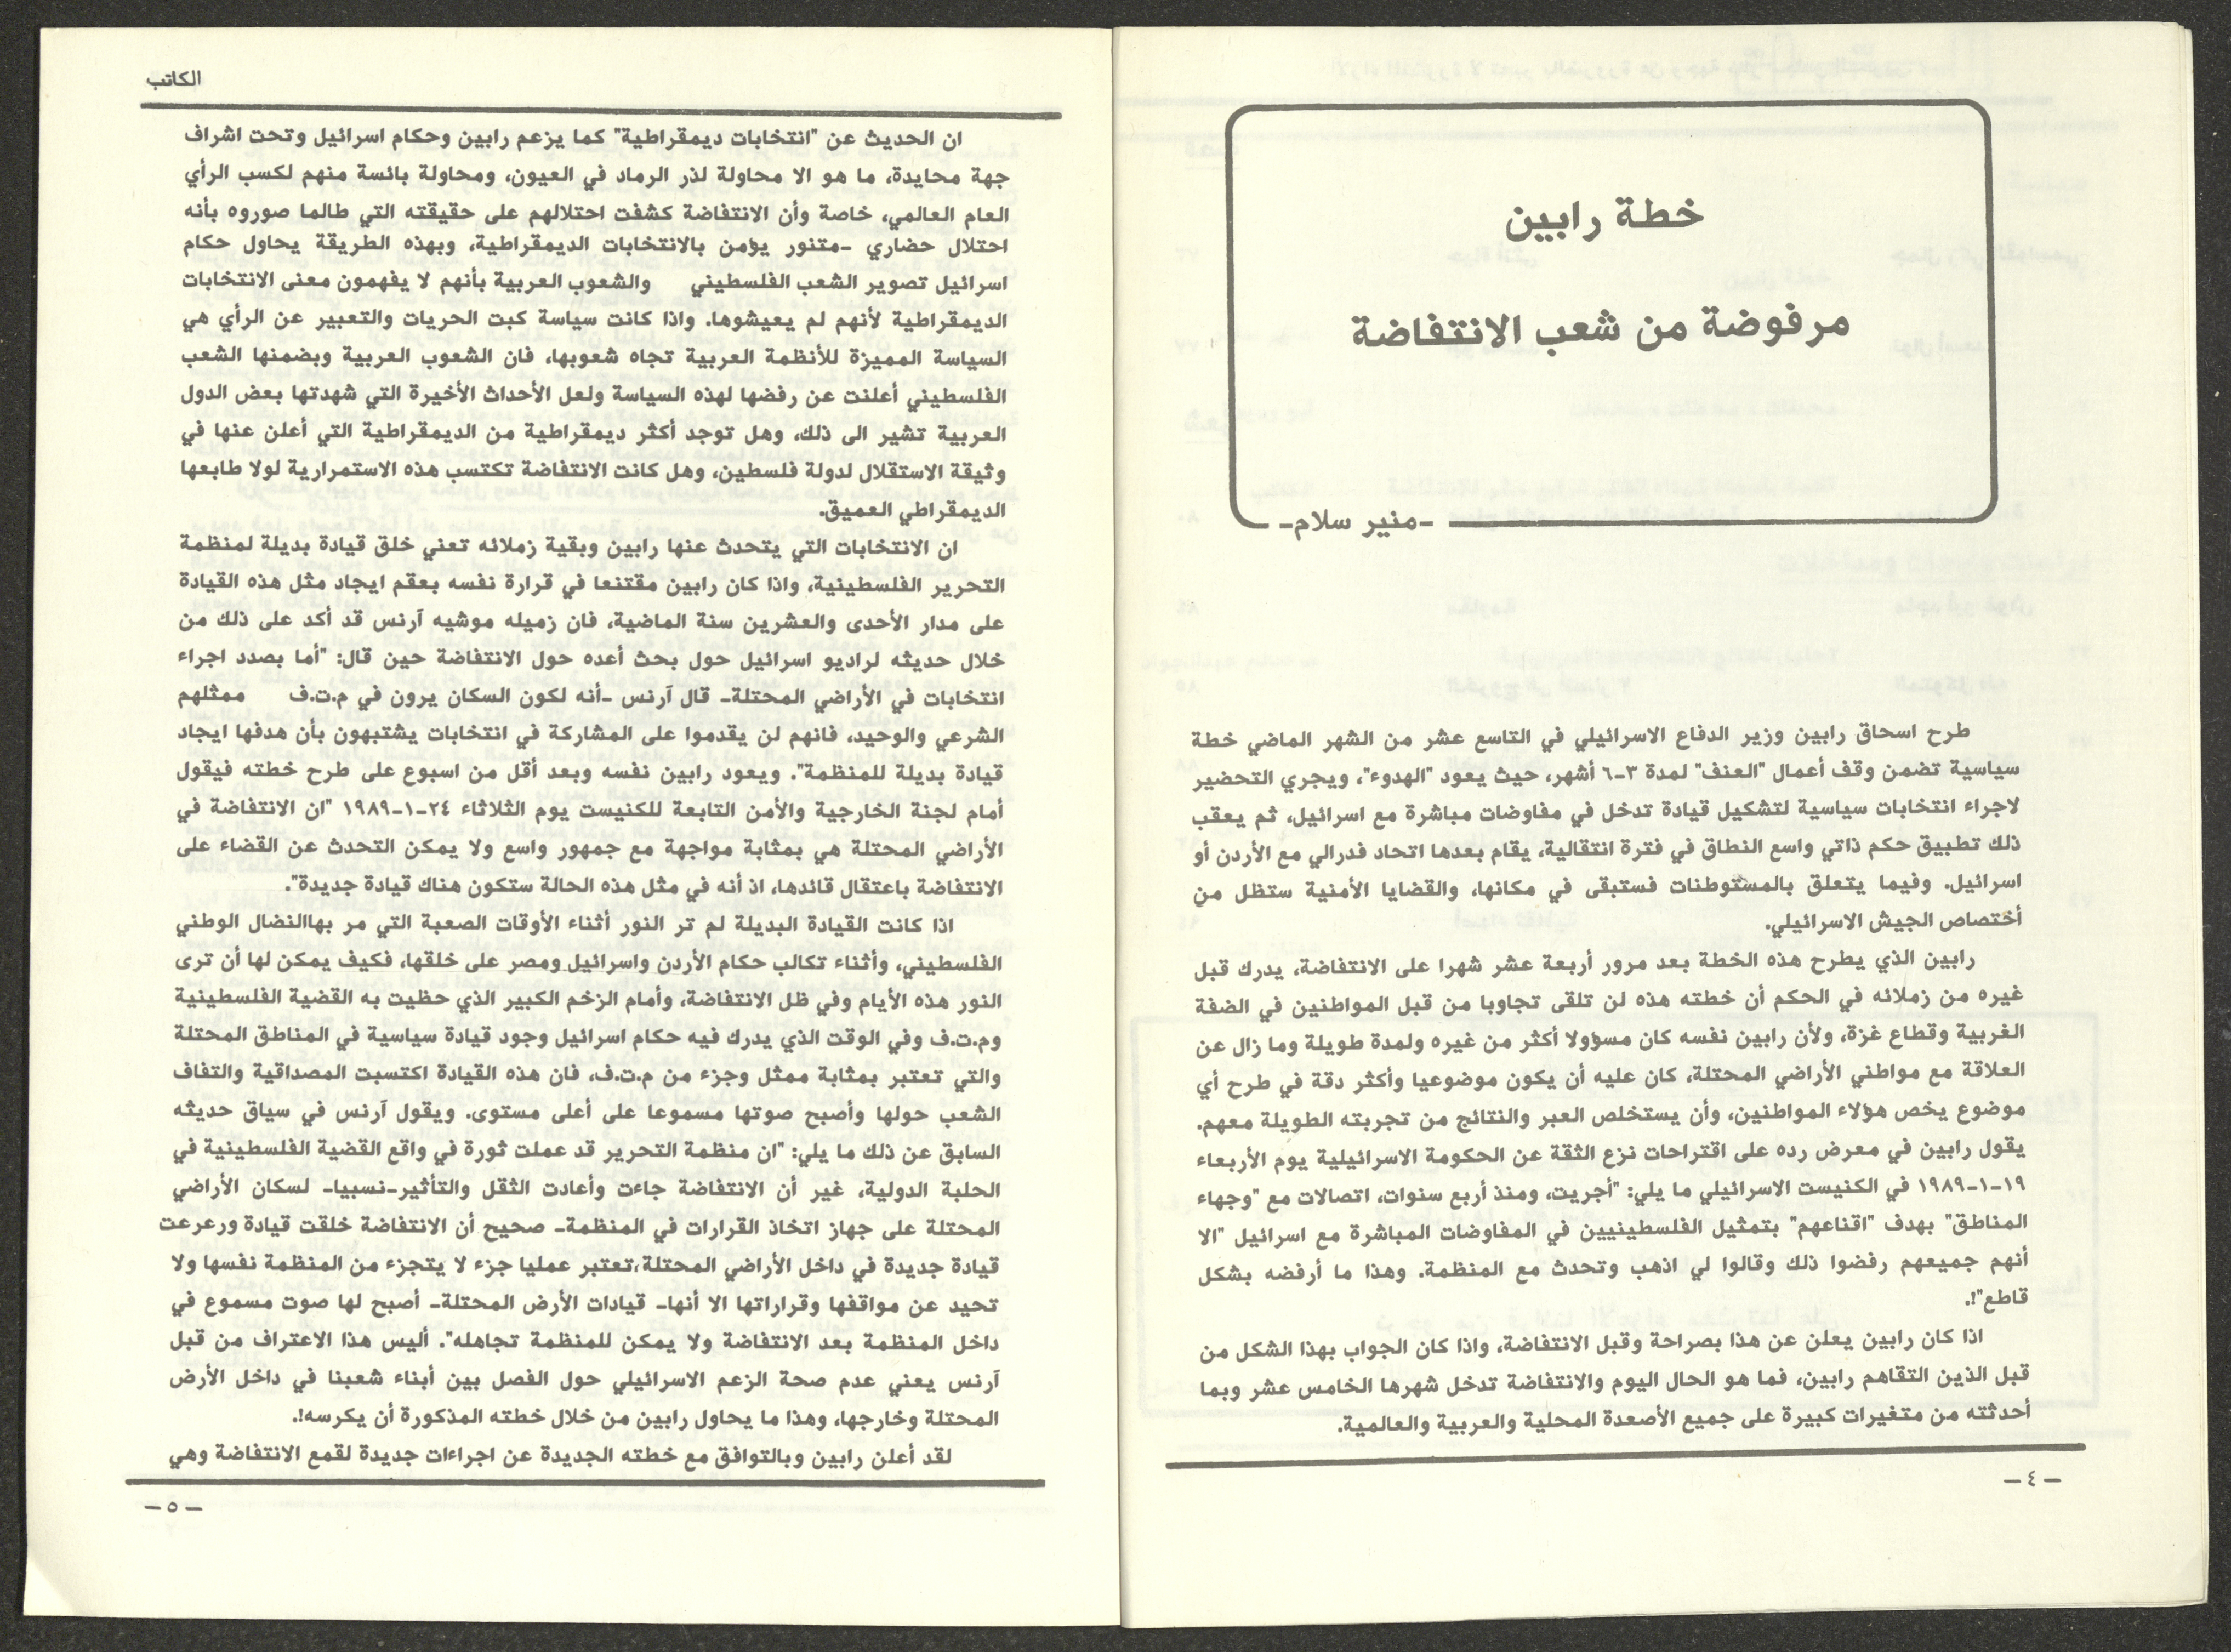 خطة رابين
مرفوضة من شعب الانتفاضة
-منير سلام-
طرح اسحاق رابين وزير الدفاع الاسرائيلي في التاسع عشر من الشهر الماضي خطة
سياسية تضمن وقف أعمال "العنف" لمدة ٣-٦ أشهر، حيث يعود "الهدوء"، ويجري التحضير
لاجراء انتخابات سياسية لتشكيل قيادة تدخل في مفاوضات مباشرة مع اسرائيل، ثم يعقب
ذلك تطبيق حكم ذاتي واسع النطاق في فترة انتقالية، يقام بعدها اتحاد فدرالي مع الأردن أو
اسرائيل. وفيما يتعلق بالمستوطنات فستبقى في مكانها، والقضايا الأمنية ستظل من
أختصاص الجيش الاسرائيلي.
رابين الذي يطرح هذه الخطة بعد مرور أربعة عشر شهرا على الانتفاضة، يدرك قبل
غيره من زملائه في الحكم أن خطته هذه لن تلقى تجاوبا من قبل المواطنين في الضفة
الغربية وقطاع غزة، ولأن رابين نفسه كان مسؤولا أكثر من غيره ولمدة طويلة وما زال عن
العلاقة مع مواطني الأراضي المحتلة، كان عليه أن يكون موضوعيا وأكثر دقة في طرح أي
موضوع يخص هؤلاء المواطنين، وأن يستخلص العبر والنتائج من تجربته الطويلة معهم.
يقول رابين في معرض رده على اقتراحات نزع الثقة عن الحكومة الاسرائيلية يوم الأربعاء
١٩-١-١٩٨٩ في الكنيست الاسرائيلي ما يلي: "أجريت، ومنذ أربع سنوات، اتصالات مع "وجهاء
المناطق" بهدف "اقناعهم" بتمثيل الفلسطينيين في المفاوضات المباشرة مع اسرائيل "الا
أنهم جميعهم رفضوا ذلك وقالوا لي اذهب وتحدث مع المنظمة. وهذا ما أرفضه بشكل
قاطع"!.
اذا كان رابين يعلن عن هذا بصراحة وقبل الانتفاضة، واذا كان الجواب بهذا الشكل من
قبل الذين التقاهم رابين، فما هو الحال اليوم والانتفاضة تدخل شهرها الخامس عشر وبما
أحدثته من متغيرات كبيرة على جميع الأصعدة المحلية والعربية والعالمية.
-٤-
الكاتب
ان الحديث عن "انتخابات ديمقراطية" كما يزعم رابين وحكام اسرائيل وتحت اشراف
جهة محايدة، ما هو الا محاولة لذر الرماد في العيون، ومحاولة بائسة منهم لكسب الرأي
العام العالمي، خاصة وأن الانتفاضة كشفت احتلالهم على حقيقته التي طالما صوروه بأنه
احتلال حضاري -متنور يؤمن بالانتخابات الديمقراطية، وبهذه الطريقة يحاول حكام
اسرائيل تصوير الشعب الفلسطيني والشعوب العربية بأنهم لا يفهمون معنى الانتخابات
الديمقراطية لأنهم لم يعيشوها. واذا كانت سياسة كبت الحريات والتعبير عن الرأي هي
السياسة المميزة للأنظمة العربية تجاه شعوبها، فان الشعوب العربية وبضمنها الشعب
الفلسطيني أعلنت عن رفضها لهذه السياسة ولعل الأحداث الأخيرة التي شهدتها بعض الدول
العربية تشير الى ذلك، وهل توجد أكثر ديمقراطية من الديمقراطية التي أعلن عنها في
وثيقة الاستقلال لدولة فلسطين، وهل كانت الانتفاضة تكتسب هذه الاستمرارية لولا طابعها
الديمقراطي العميق.
ان الانتخابات التي يتحدث عنها رابين وبقية زملائه تعني خلق قيادة بديلة لمنظمة
التحرير الفلسطينية، واذا كان رابين مقتنعا في قرارة نفسه بعقم ايجاد مثل هذه القيادة
على مدار الأحدى والعشرين سنة الماضية، فان زميله موشيه آرنس قد أكد على ذلك من
خلال حديثه لراديو اسرائيل حول بحث أعده حول الانتفاضة حين قال: "أما بصدد اجراء
انتخابات في الأراضي المحتلة- قال آرنس -أنه لكون السكان يرون في م.ت.ف ممثلهم
الشرعي والوحيد، فانهم لن يقدموا على المشاركة في انتخابات يشتبهون بأن هدفها ايجاد
قيادة بديلة للمنظمة". ويعود رابين نفسه وبعد أقل من اسبوع على طرح خطته فيقول
أمام لجنة الخارجية والأمن التابعة للكنيست يوم الثلاثاء ٢٤-١-١٩٨٩ "ان الانتفاضة في
الأراضي المحتلة هي بمثابة مواجهة مع جمهور واسع ولا يمكن التحدث عن القضاء على
الانتفاضة باعتقال قائدها، اذ أنه في مثل هذه الحالة ستكون هناك قيادة جديدة".
اذا كانت القيادة البديلة لم تر النور أثناء الأوقات الصعبة التي مر بهاالنضال الوطني
الفلسطيني، وأثناء تكالب حكام الأردن واسرائيل ومصر على خلقها، فكيف يمكن لها أن ترى
النور هذه الأيام وفي ظل الانتفاضة، وأمام الزخم الكبير الذي حظيت به القضية الفلسطينية
وم.ت.ف وفي الوقت الذي يدرك فيه حكام اسرائيل وجود قيادة سياسية في المناطق المحتلة
والتي تعتبر بمثابة ممثل وجزء من م.ت.ف، فان هذه القيادة اكتسبت المصداقية والتفاف
الشعب حولها وأصبح صوتها مسموعا على أعلى مستوى. ويقول آرنس في سياق حديثه
السابق عن ذلك ما يلي: "ان منظمة التحرير قد عملت ثورة في واقع القضية الفلسطينية في
الحلبة الدولية، غير أن الانتفاضة جاءت وأعادت الثقل والتأثير-نسبيا- لسكان الأراضي
المحتلة على جهاز اتخاذ القرارات في المنظمة- صحيح أن الانتفاضة خلقت قيادة ورعرعت
قيادة جديدة في داخل الأراضي المحتلة،تعتبر عمليا جزء لا يتجزء من المنظمة نفسها ولا
تحيد عن مواقفها وقراراتها الا أنها- قيادات الأرض المحتلة- أصبح لها صوت مسموع في
داخل المنظمة بعد الانتفاضة ولا يمكن للمنظمة تجاهله". أليس هذا الاعتراف من قبل
آرنس يعني عدم صحة الزعم الاسرائيلي حول الفصل بين أبناء شعبنا في داخل الأرض
المحتلة وخارجها، وهذا ما يحاول رابين من خلال خطته المذكورة أن يكرسه!.
لقد أعلن رابين وبالتوافق مع خطته الجديدة عن اجراءات جديدة لقمع الانتفاضة وهي
-٥-